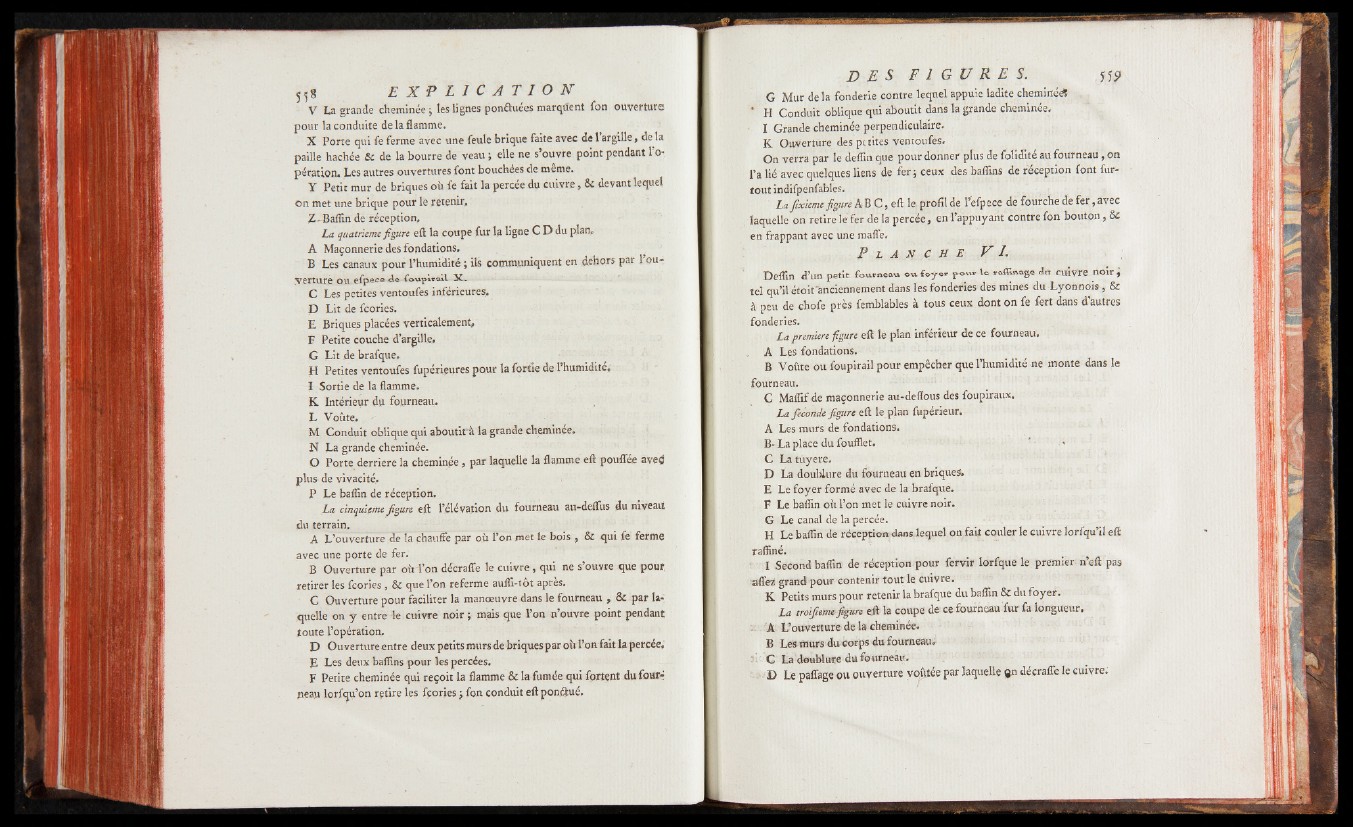 558 EXPLICATION
V La grande cheminée ; les lignes ponctuées marquent ſon ouverture
pour la conduite de la flamme.
X Porte qui ſe ferme avec une ſeule brique faite avec de l'argille, de la
paille hachée & de la bourre de veau ; elle ne s'ouvre point pendant l'o-
pération. Les autres ouvertures ſont bouchées de même.
Y Petit mur de briques où ſe fait la percée du cuivre, & devant lequel
on met une brique pour le retenir,
Z Baſſin de réception,
La quatrieme figure eſt la coupe ſur la ligne C D du plan,
A Maçonnerie des fondations.
B Les canaux pour l'humidité ; ils communiquent en dehors par l'ou-
verture ou eſpece de ſoupirail X.
C Les petites ventouſes inférieures.
D Lit de ſcories.
E Briques placées verticalement,
F Petite couche d'argille.
G Lit de braſque.
H Petites ventouſes ſupérieures pour la ſortie de l'humidité,
I Sortie de la flamme.
K Intérieur du fourneau.
L Voûte.
M Conduit oblique qui aboutit à la grande cheminée.
N La grande cheminée.
O Porte derriere la cheminée, par laquelle la flamme eſt pouſſée avec
plus de vivacité.
P Le baſſin de réception.
La cinquieme figure eſt l'élévation du fourneau au-deſſus du niveau
du terrain.
A L'ouverture de la chauffe par où l'on met le bois, & qui ſe ferme
avec une porte de fer.
B Ouverture par où l'on décraſſe le cuivre, qui ne s'ouvre que pour
retirer les ſcories, & que l'on referme auſſi-tôt après.
C Ouverture pour faciliter la manœuvre dans le fourneau, & par la-
quelle on y entre le cuivre noir ; mais que l'on n'ouvre point pendant
toute l'opération.
D Ouverture entre deux petits murs de briques par où l'on fait la percée.
E Les deux baſſins pour les percées.
F Petite cheminée qui reçoit la flamme & la fumée qui ſortent du four-
neau lorſqu'on retire les ſcories ; ſon conduit eſt ponctué.
DES FIGURES. 559
G Mur de la fonderie contre lequel appuie ladite cheminée
H Conduit oblique qui aboutit dans la grande cheminée.
I Grande cheminée perpendiculaire.
K Ouverture des petites ventouſes.
On verra par le deſſin que pour donner plus de ſolidité au fourneau, on
l'a lié avec quelques liens de fer ; ceux des baſſins de réception ſont ſur-
tout indiſpenſables.
La ſixieme figure A B C, eſt le profil de l'eſpece de fourche de fer, avec
laquelle on retire le fer de la percée, en l'appuyant contre ſon bouton, &
en frappant avec une maſſe.
PLANCHE VI.
Deſſin d'un petit fourneau ou foyer pour le raffinage du cuivre noir,
tel qu'il étoit anciennement dans les fonderies des mines du Lyonnois, &
à peu de choſe près ſemblables à tous ceux dont on ſe ſert dans d'autres
fonderies.
La premiere figure eſt le plan inférieur de ce fourneau.
A Les fondations.
B Voûte ou ſoupirail pour empêcher que l'humidité ne monte dans le
fourneau.
C Maſſif de maçonnerie au-deſſous des ſoupiraux.
La ſeconde figure eſt le plan ſupérieur.
A Les murs de fondations.
B La place du ſoufflet.
C La tuyere.
D La doublure du fourneau en briques.
E Le foyer formé avec de la braſque.
F Le baſſin où l'on met le cuivre noir.
G Le canal de la percée.
H Le baſſin de réception dans lequel on fait couler le cuivre lorſqu'il eſt
raffiné.
I Second baſſin de réception pour ſervir lorſque le premier n'eſt pas
aſſez grand pour contenir tout le cuivre.
K Petits murs pour retenir la braſque du baſſin & du foyer.
La troiſieme figure eſt la coupe de ce fourneau ſur ſa longueur.
A L'ouverture de la cheminée.
B Les murs du corps du fourneau.
C La doublure du fourneau.
D Le paſſage ou ouverture voûtée par laquelle on décraſſe le cuivre.